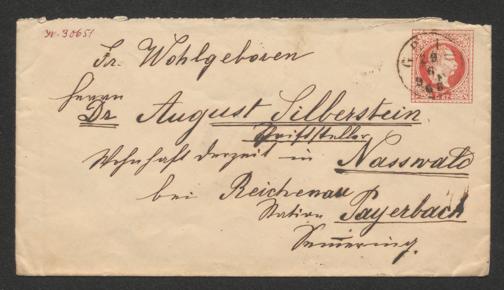 Sr. Wohlgeboren
Herrn
Dr. August Silberstein
Schriftsteller
Wohnhaft derzeit in Nasswald
bei Reichenau
Station Payerbach
Semmering.